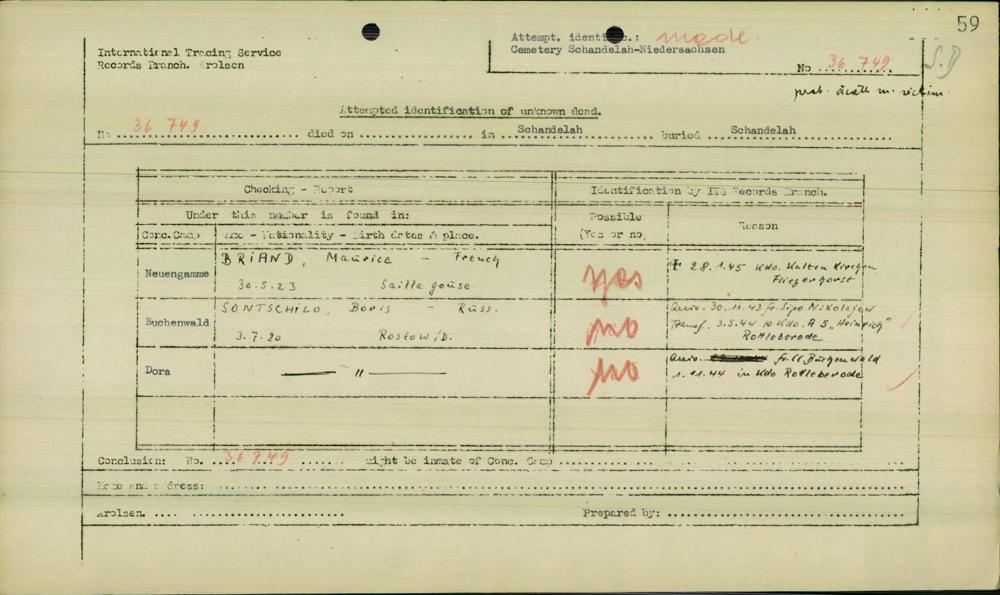 59
International Tracing Service
Records Branch. Arolsen
Attempt. identific.: made
Cemetery Schandelah-Niedersachsen
No 36 749
S.D
prob. death m. victim.
Attempted identification of unknown dead.
No 36 749 died on in Schandelah buried Schandelah
Checking - Report
Identification by ITS Records Branch.
Under this number is found in:
Possible
(Yes or no)
Reason
Conc.Camp
Name - Nationality - Birth dates & place.
Neuengamme
BRIAND, Maurice - French
30.5.23 Saille gouse
yes
† 28.1.45 Kdo. Kalten Kirchen
Fliegerhorst
Buchenwald
SONTSCHILO, Boris Russ.
3.7.20 Rostow/D.
no
Arriv. 30.11.43 fr. Sipo Nikolajew
Transf. 3.5.44 to Kdo. A 5 "Heinrich"
Rottleberode
Dora
— " —
no
Arriv. fr. CC Buchenwald
1.11.44 in Kdo Rottleberode
Conclusion: No. 36749 might be inmate of Conc. Camp
Name and address:
Arolsen.
Prepared by: